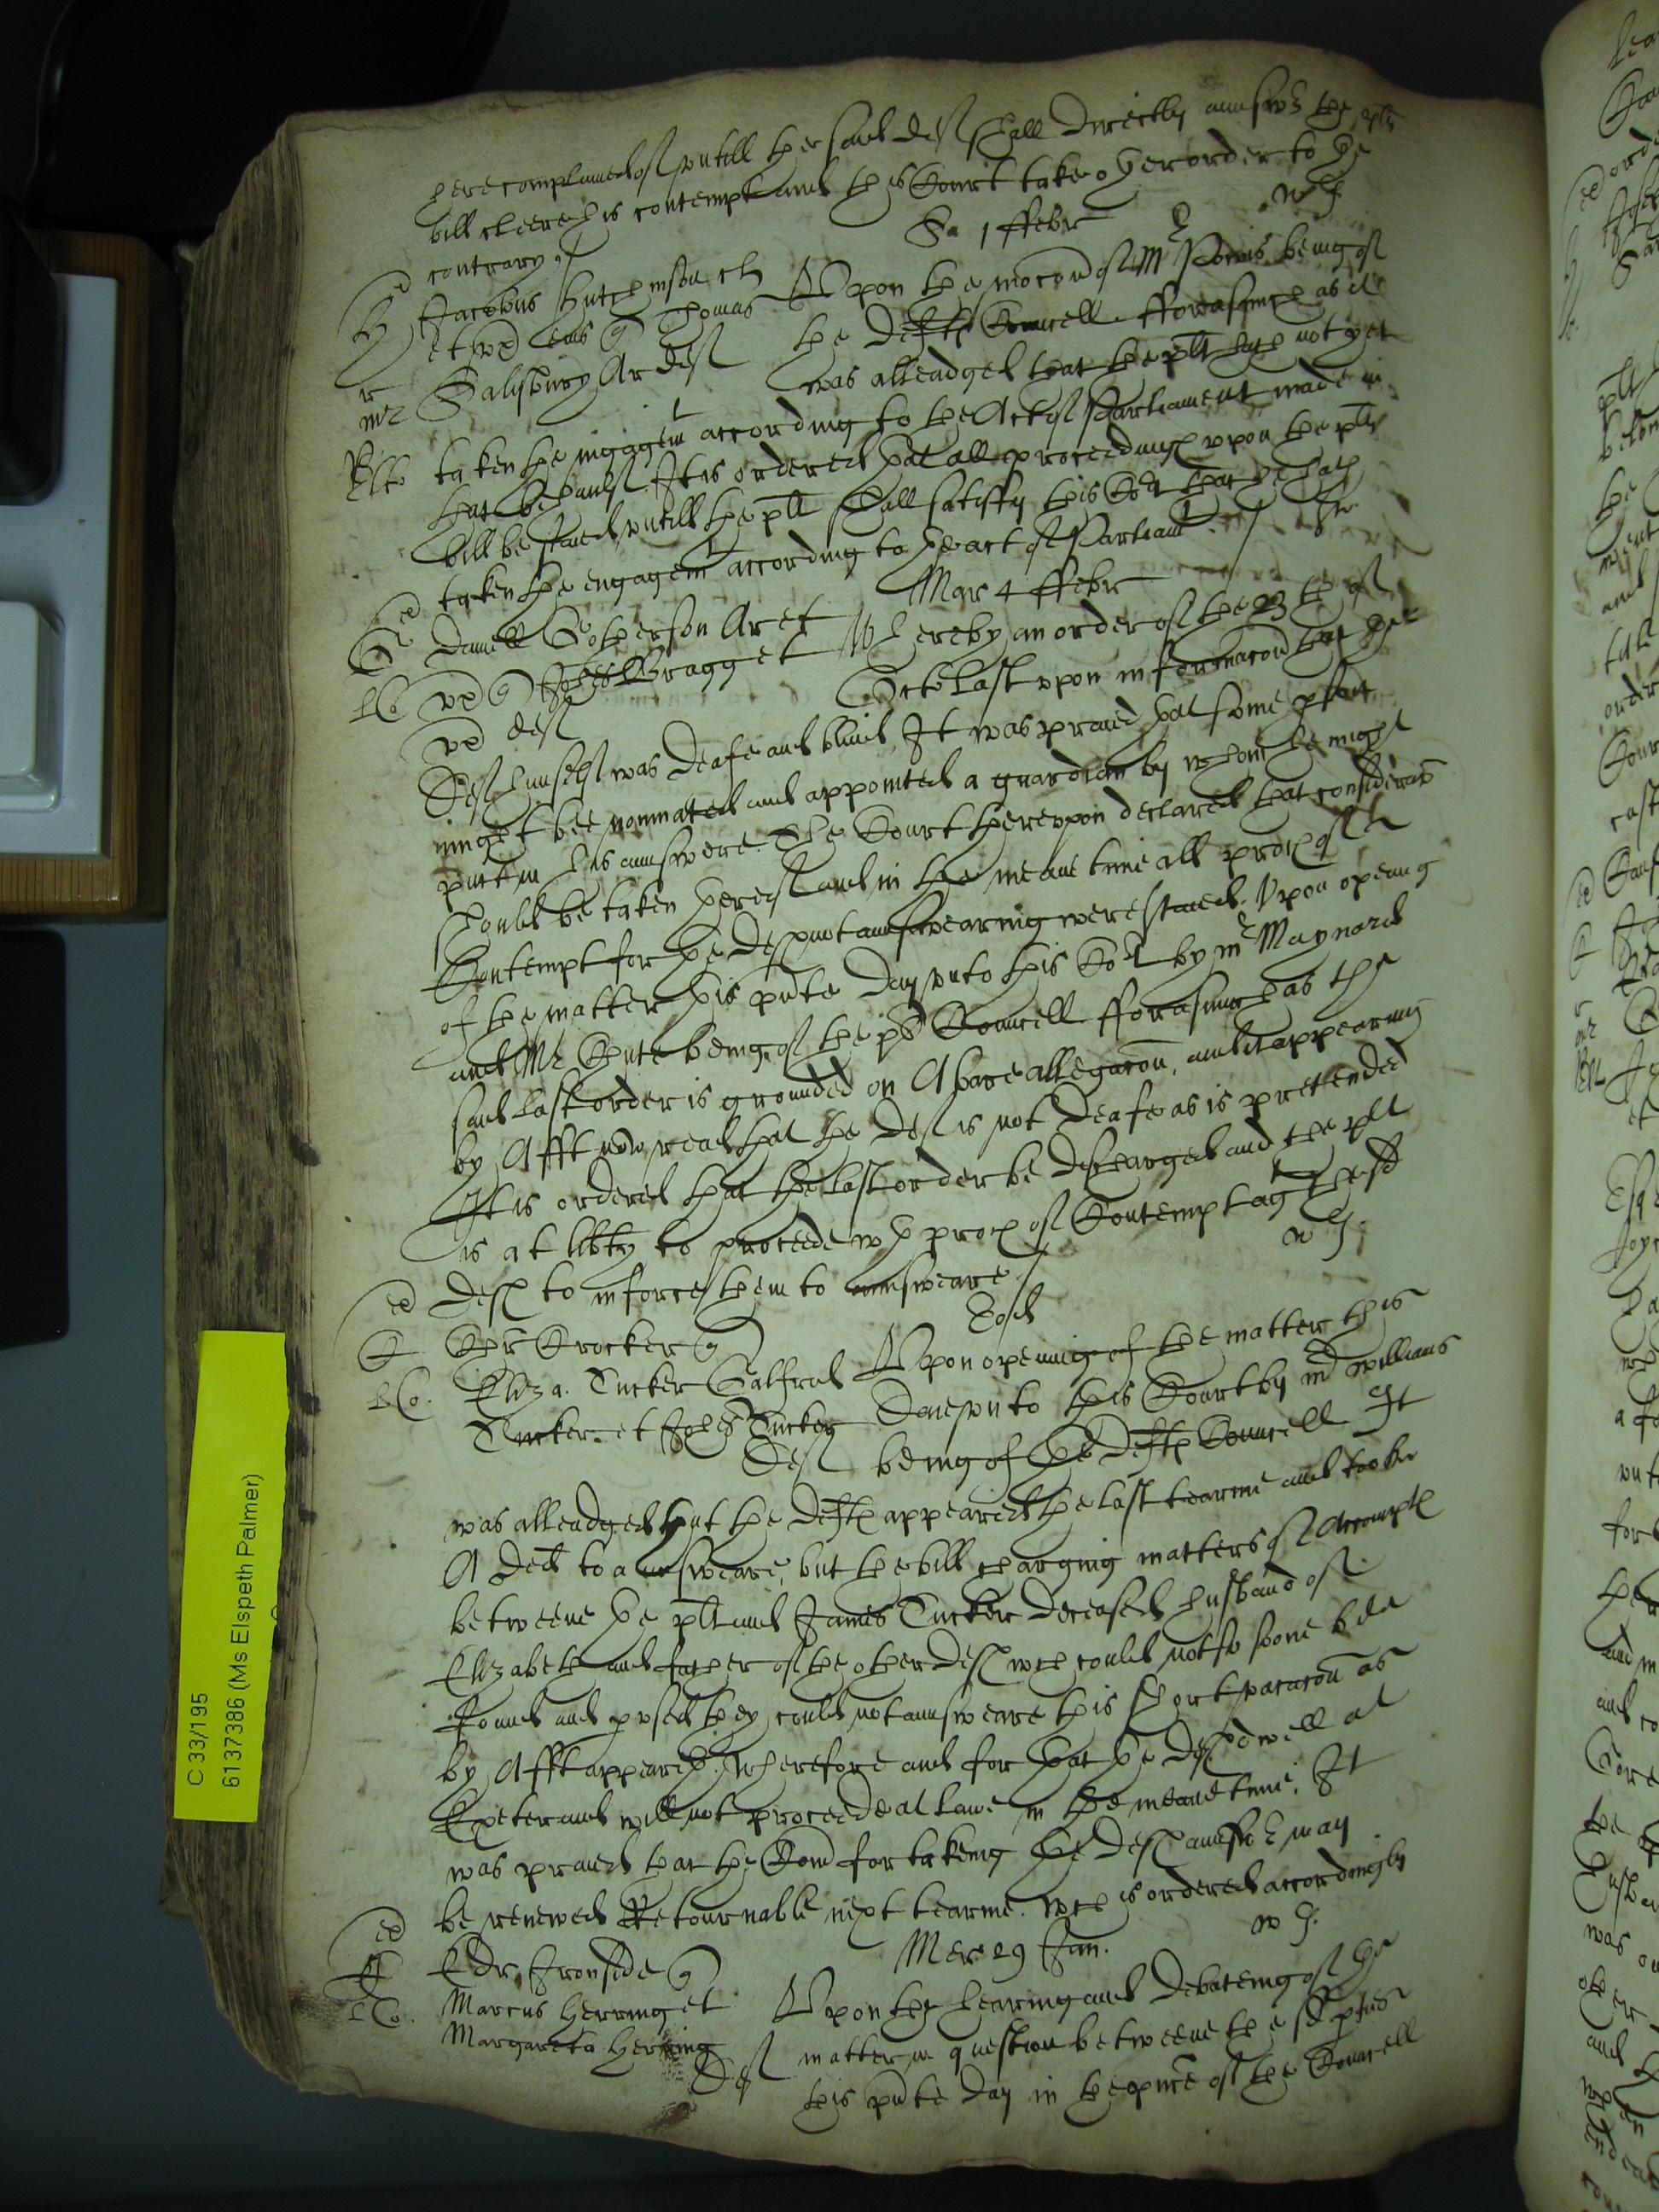 here complained of untill the said def shall directly answer the plts
bill cleere his contempt and this Court take other order to the
contrary
Sa 1 ffebr
Jacobus Hutchinson
et ux Thomas
Salisbury Ar def
Upon the mocon of Mr Powis being of
the defts Councell fforasmuch as it
was alleadged that the plt hath not yet
taken the ingagemt according to the Act of Parliament made in
that behaulf It is ordered that all proceedings upon the plts
bill be staied untill the plt shall satisfy this Cot that he hath
taken the engagemt according to the act of Parliamt
Mar 4 ffebr
Daniell Ar et
ux Johes Bragget
ux def
Whereby an order of the 23th of
Octo last upon informacon that the
def himself was deafe and blind It was praied that some pson
might bee nominated and appointed a guardian by whom he might
put in his answere. The Court thereupon declared that consideracon
should be taken thereof and in the meane time all proces of
Contempt for the defs not answearing were staied. Upon opening
of the matter this pnte day unto this Cot by mr Maynard
and Mr Chute being of the plts Councell fforasmuch as the
said last order is grounded on A bare allegacon, and it appearing
by Afft now read that the def is not deafe as is pretended
It is ordered that the last order be discharged and the plt
is at libty to proceede wth proces of Contempt agt the sd
defs to inforce them to answeare
Eod
Crocker
Eliza. Tucker Galfrid
Tucker et Johes Tucker
def
Upon opening of the matter this
daie unto this Court by mr Williams
being of the defts Councell It
was alleadged that the defts appeared the last tearme and tooke
A ded to answeare, but the bill charging matters of Accompts
betweene the plt and James Tucker deceased husband of
Elizabeth and father of the other defs wch could not so soone bee
found and pused they could not answeare this short vacacon as
by Afft appeareth. Wherefore and for that the defs dwell at
Exeter and will not proceede at lawe in the meane time. It
was praied that the Com for takeing the defs answer may
be renewed Retournable next tearme. wch is ordered accordingly
Mer 29 Jan.
Edr Ironside
Marcus Herring et
Margareta Herring
def
Upon the hearing and debateing of the
matter in question betweene the sd pties
this pnte day in the pnce of the Councell
C 33/195
6137386 (Ms Elspeth Palmer)